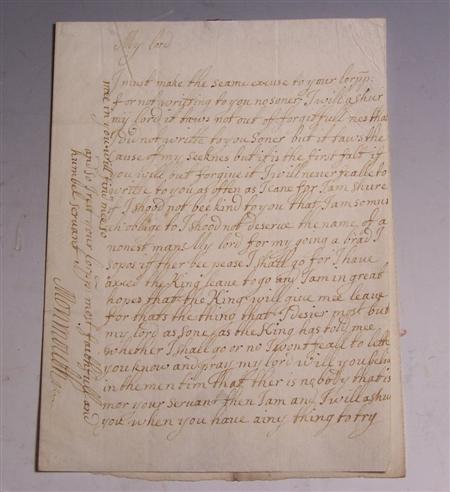 My lord
I must make the seame excuse to your lorpp:
for not wrighting to you no soner I will ashur
my lord it taws not out of forgitfullnes that
I did not writte to you soner but it taws the
cause of my seeknes but it is the first falt if
you will but forgive it I will never fealle to
writte to you as often as I cane for I am shure
if I shood not bee kind to you that I am so mus
ch oblige to I shood not deserve the name of a
nonest man My lord for my going a brad I
sopos if ther bee pease I shall go for I have
axked the King leave to go and I am in great
hopes that the King will give mee leave
for thats the thing that I desier most but
my lord as sone as the King has told mee
whether I shall go or no I wont feall to lett
you know and pray my lord will you beliv
in the men tim that ther is nobody that is
mor your servant then I am any I will ashur
you when you have ainy thing to try
mee in you will find me so
and so I rest your most faithfull and
humbel servant
Monmouth